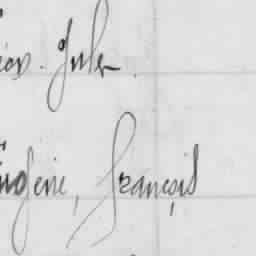 Jules
Eugène, François